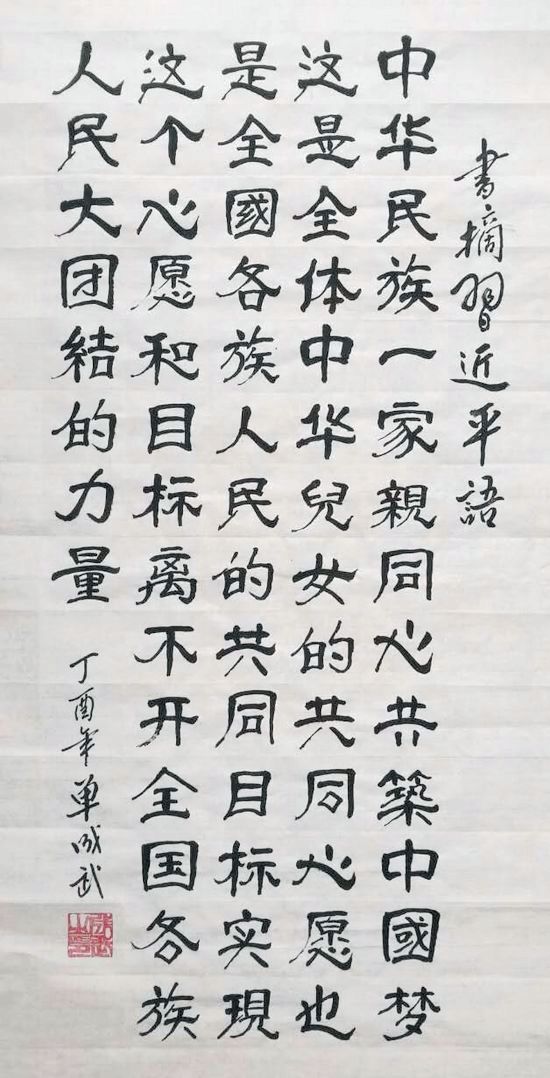 書摘習近平語
中华民族一家親同心共築中國梦
这是全体中华兒女的共同心愿也
是全國各族人民的共同目标实現
这个心愿和目标离不开全国各族
人民大团結的力量
丁酉年单成武